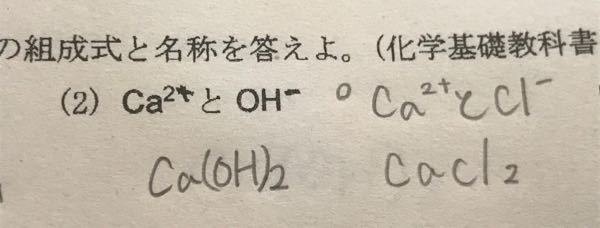 の組成式と名称を答えよ。(化学基礎教科書
(2) Ca²⁺とOH⁻ ○ Ca²⁺とCl⁻
Ca(OH)₂ CaCl₂